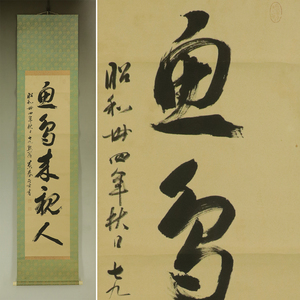 魚鳥来親人
昭和卅四年秋日七九
魚鳥
昭和卅四年秋日七九